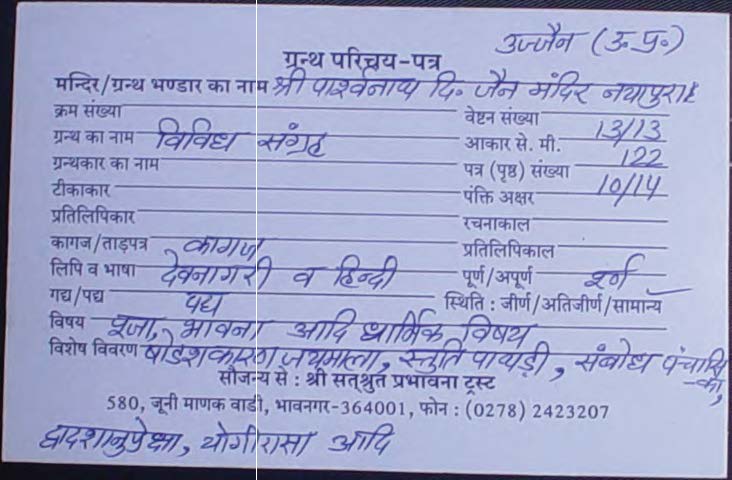 उज्जैन (उ.प्र.)
ग्रन्थ परिचय-पत्र
मन्दिर/ग्रन्थ भण्डार का नाम श्री पार्श्वनाथ दि॰ जैन मंदिर नयापुरा
क्रम संख्या वेष्टन संख्या
ग्रन्थ का नाम विविध संग्रह आकार से. मी. 13/13
ग्रन्थकार का नाम पत्र (पृष्ठ) संख्या 122
टीकाकार पंक्ति अक्षर 10/14
प्रतिलिपिकार रचनाकाल
कागज/ताड़पत्र कागज प्रतिलिपिकाल
लिपि व भाषा देवनागरी व हिन्दी पूर्ण/अपूर्ण पूर्ण
गद्य/पद्य पद्य स्थिति : जीर्ण/अतिजीर्ण/सामान्य
विषय पूजा, भावना आदि धार्मिक विषय
विशेष विवरण षोडशकारण जयमाला, स्तुति पायड़ी, संबोध पंचासिका,
सौजन्य से : श्री सत्श्रुत प्रभावना ट्रस्ट
580, जूनी माणक वाडी, भावनगर-364001, फोन : (0278) 2423207
द्वादशानुप्रेक्षा, योगीरासा आदि